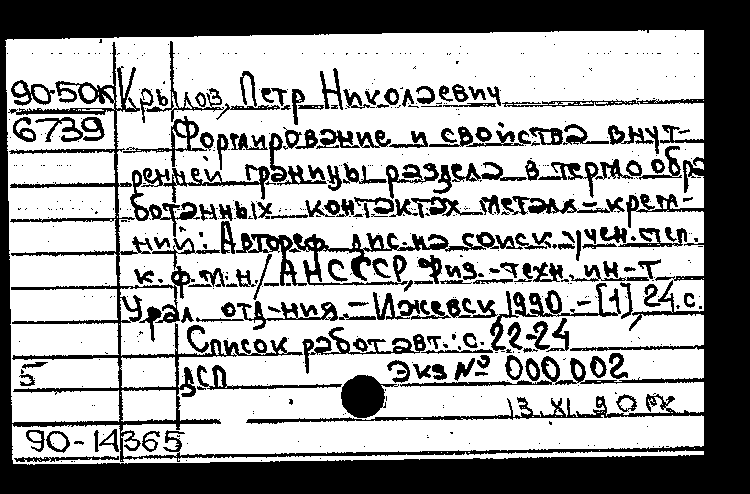 90-50к Крылов, Петр Николаевич
6739 Формирование и свойства внут-
ренней границы раздела в термообра
ботанных контактах металл-крем-
ний: Автореф. дис. на соиск. учен. степ.
к.ф.м.н. / АН СССР, Физ.-техн. ин-т
Урал. отд-ния. - Ижевск, 1990. - [1] 24.с.
Список работ авт.: с. 22-24
5 ДСП Экз № 000 002
13.XI.90
90-14365